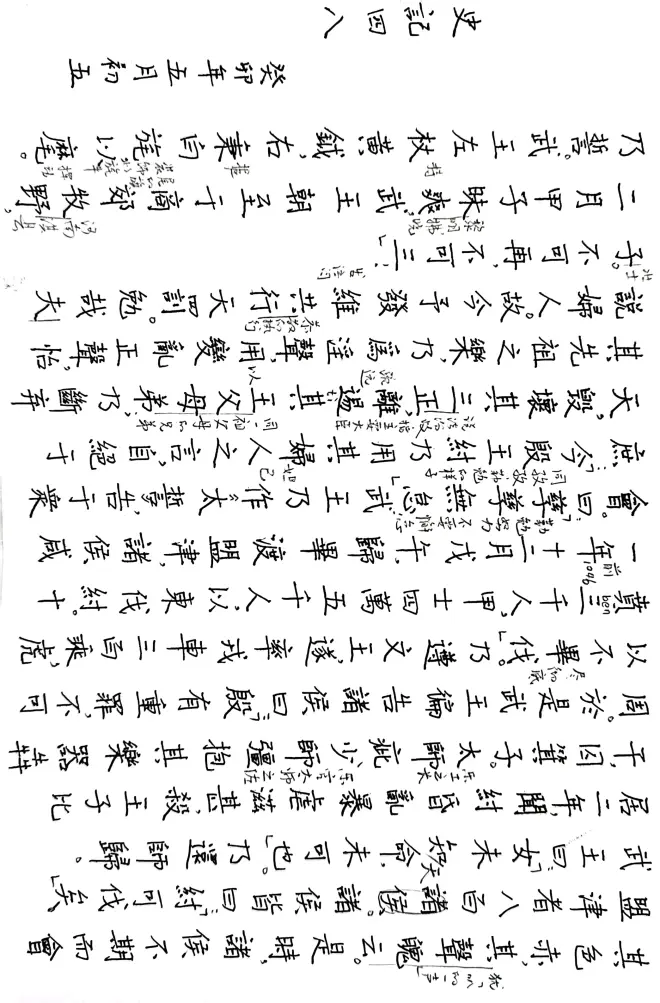 其色赤,其聲魄云。是時,諸侯不期而會
盟津者八百諸侯。諸侯皆曰:「紂可伐矣。」
武王曰:「女未知天命,未可也。」乃還師歸。
居二年,聞紂昏亂暴虐滋甚,殺王子比
干,囚箕子。太師疵、少師彊抱其樂器犇
周。於是武王徧告諸侯曰:「殷有重罪,不可
以不畢伐。」乃遵文王,遂率戎車三百乘,虎
賁三千人,甲士四萬五千人,以東伐紂。十
ben
一年十二月戊午,師畢渡盟津,諸侯咸
前1046
會。曰:「孳孳無怠!」武王乃作太誓,告于衆
庶:「今殷王紂乃用其婦人之言,自絕于
天,毀壞其三正,離逷其王父母弟,乃斷弃
其先祖之樂,乃爲淫聲,用變亂正聲,怡
說婦人。故今予發維共行天罰。勉哉夫
子。不可再,不可三!」
二月甲子昧爽,武王朝至于商郊牧野,
乃誓。武王左杖黃鉞,右秉白旄以麾。
癸卯年五月初五
史記四八